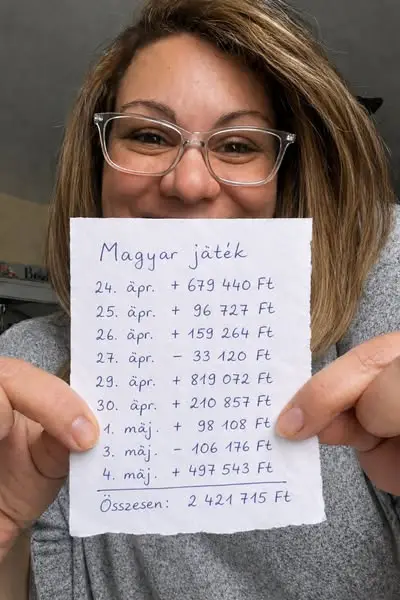 Magyar jäték
24. äpr. + 679 440 Ft
25. äpr. + 96 727 Ft
26. äpr. + 159 264 Ft
27. äpr. - 33 120 Ft
29. äpr. + 819 072 Ft
30. äpr. + 210 857 Ft
1. mäj. + 98 108 Ft
3. mäj. - 106 176 Ft
4. mäj. + 497 543 Ft
Összesen: 2 421 715 Ft